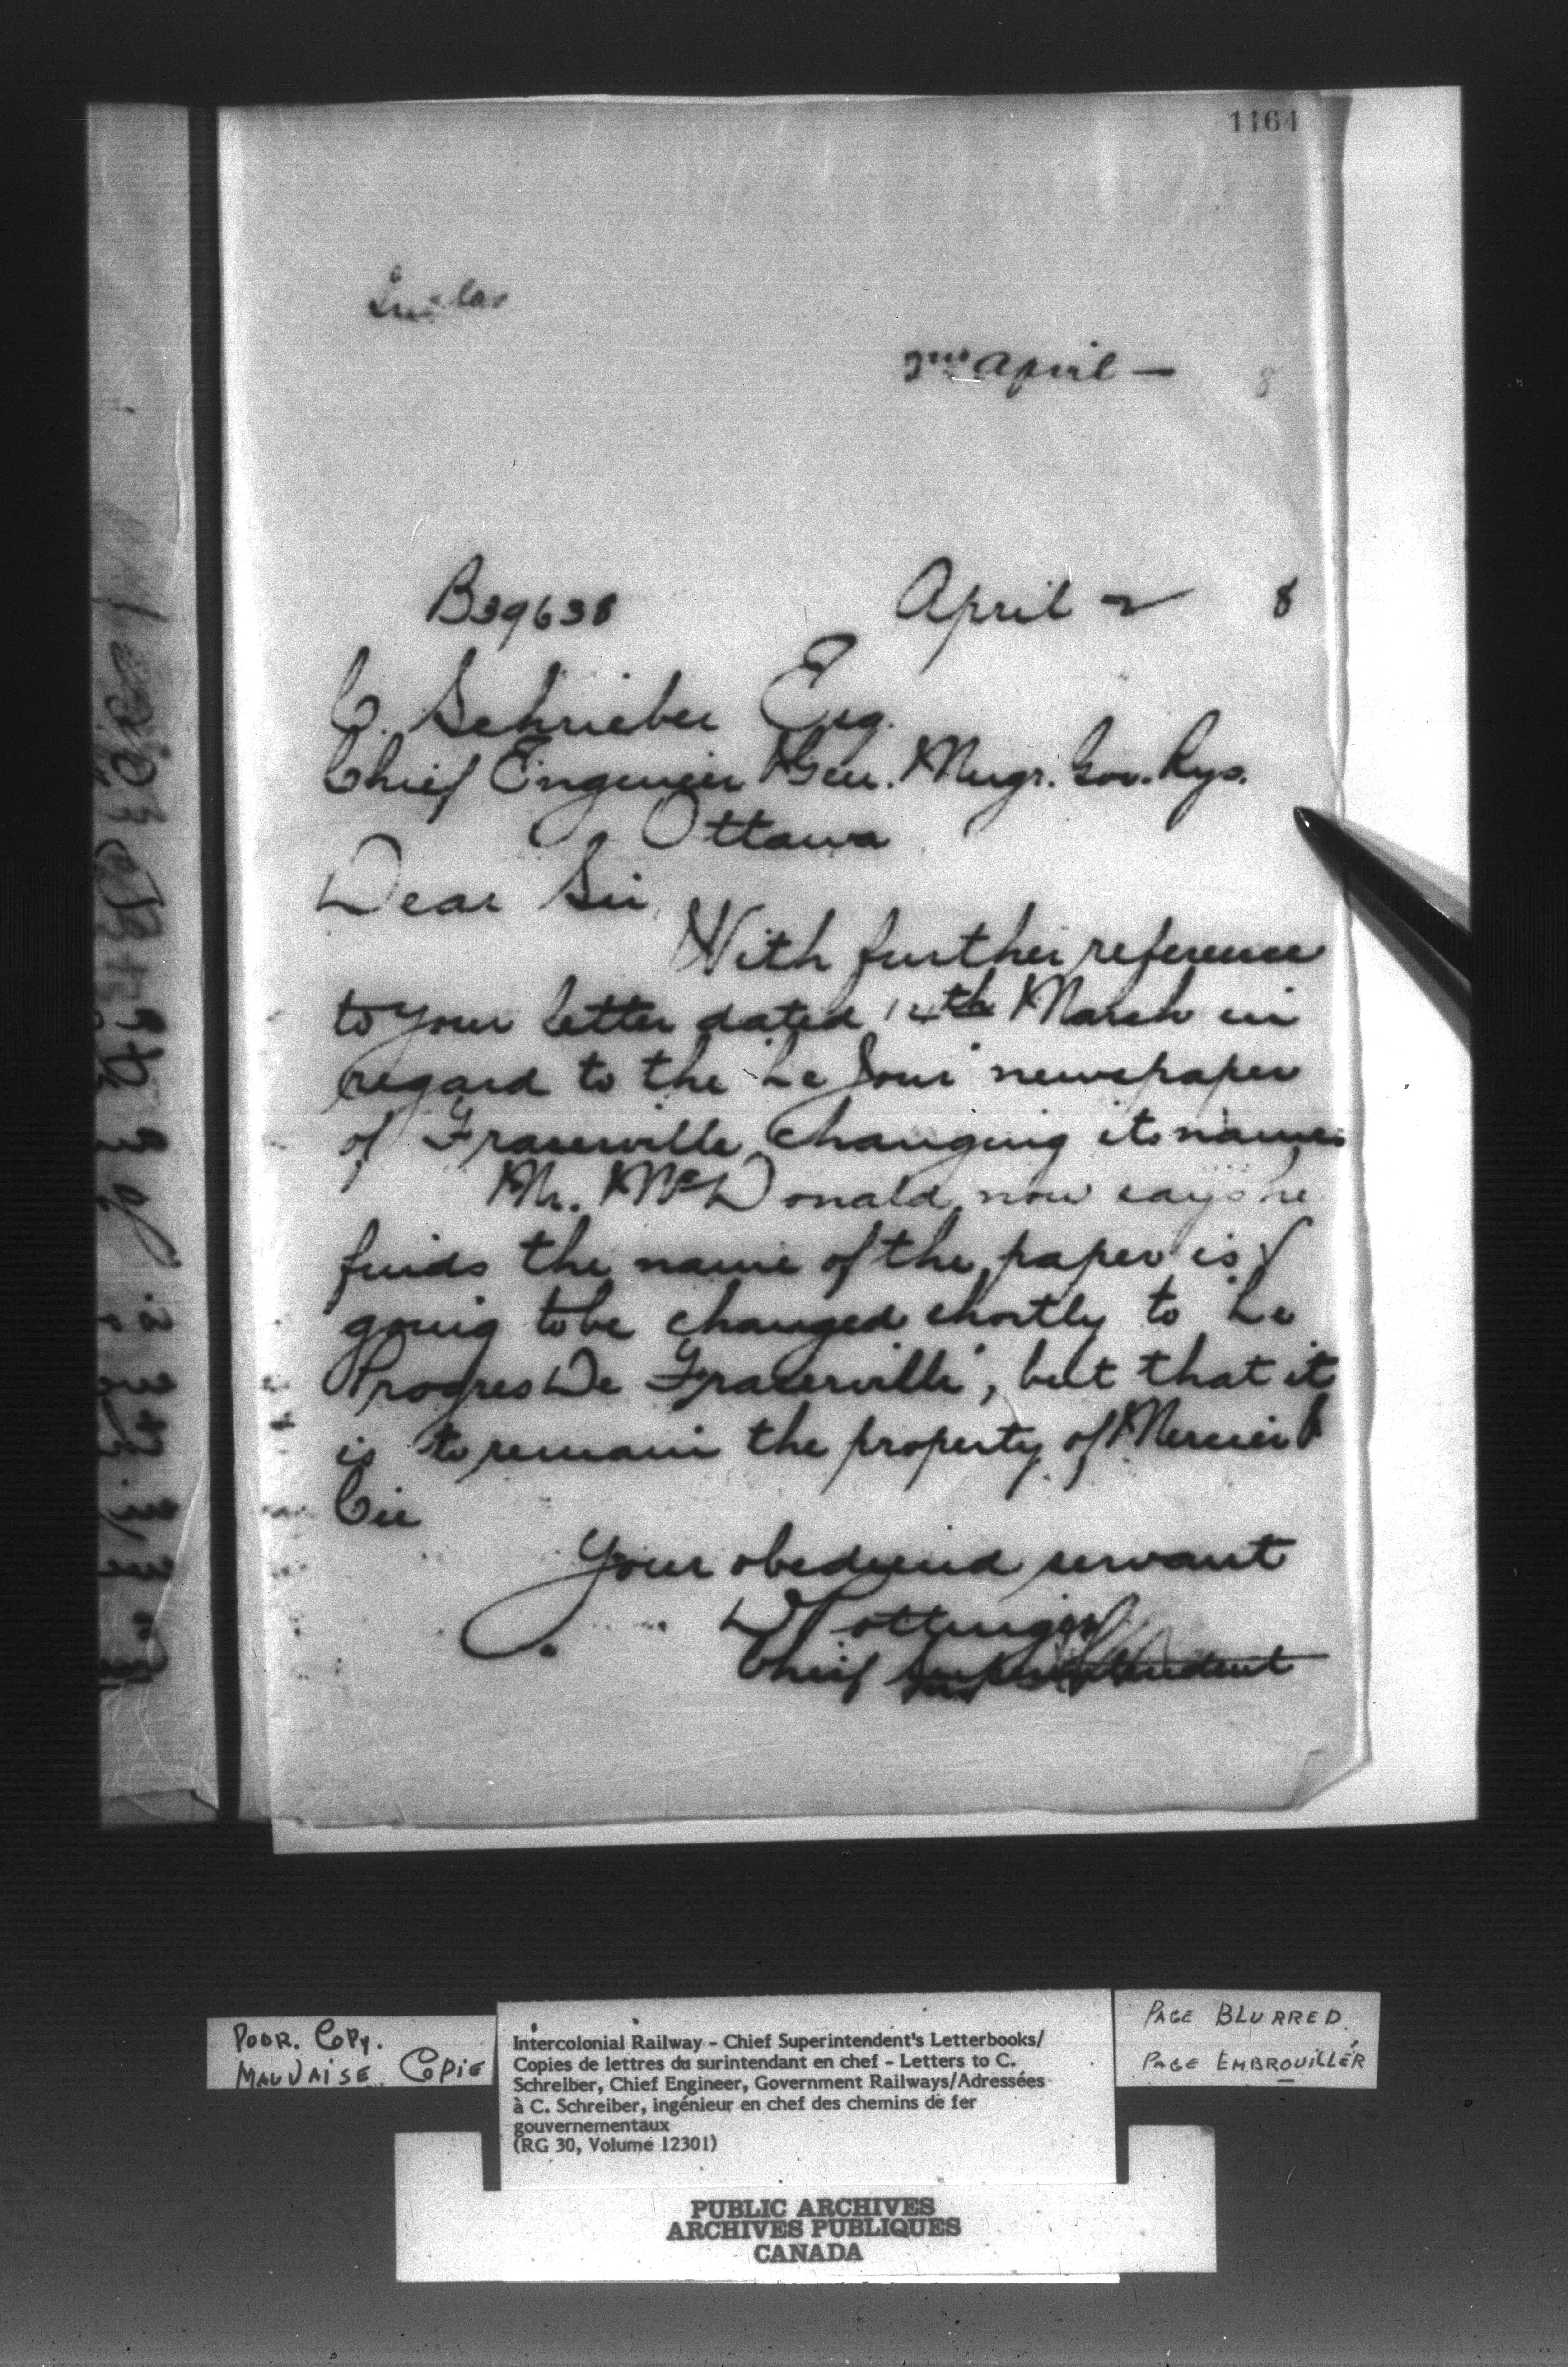 1164
2nd April — 8
B39638 April 2 8
C. Schrieber Esq.
Chief Engineer & Gen. Mngr. Gov. Rys.
Ottawa
Dear Sir,
With further reference
to your letter dated 14th March in
regard to the "Le Jour" newspaper
of Fraserville changing its name,
Mr. McDonald now says he
finds the name of the paper is
going to be changed shortly to "Le
Progres De Fraserville", but that it
is to remain the property of Mercier &
Cie
Your obediend servant
D Pottinger
Chief Superintendent
POOR. COPY.
MAUVAISE COPIE
Intercolonial Railway - Chief Superintendent's Letterbooks/
Copies de lettres du surintendant en chef - Letters to C.
Schreiber, Chief Engineer, Government Railways/Adressées
à C. Schreiber, ingénieur en chef des chemins de fer
gouvernementaux
(RG 30, Volume 12301)
PAGE BLURRED.
PAGE EMBROUILLÉR
PUBLIC ARCHIVES
ARCHIVES PUBLIQUES
CANADA